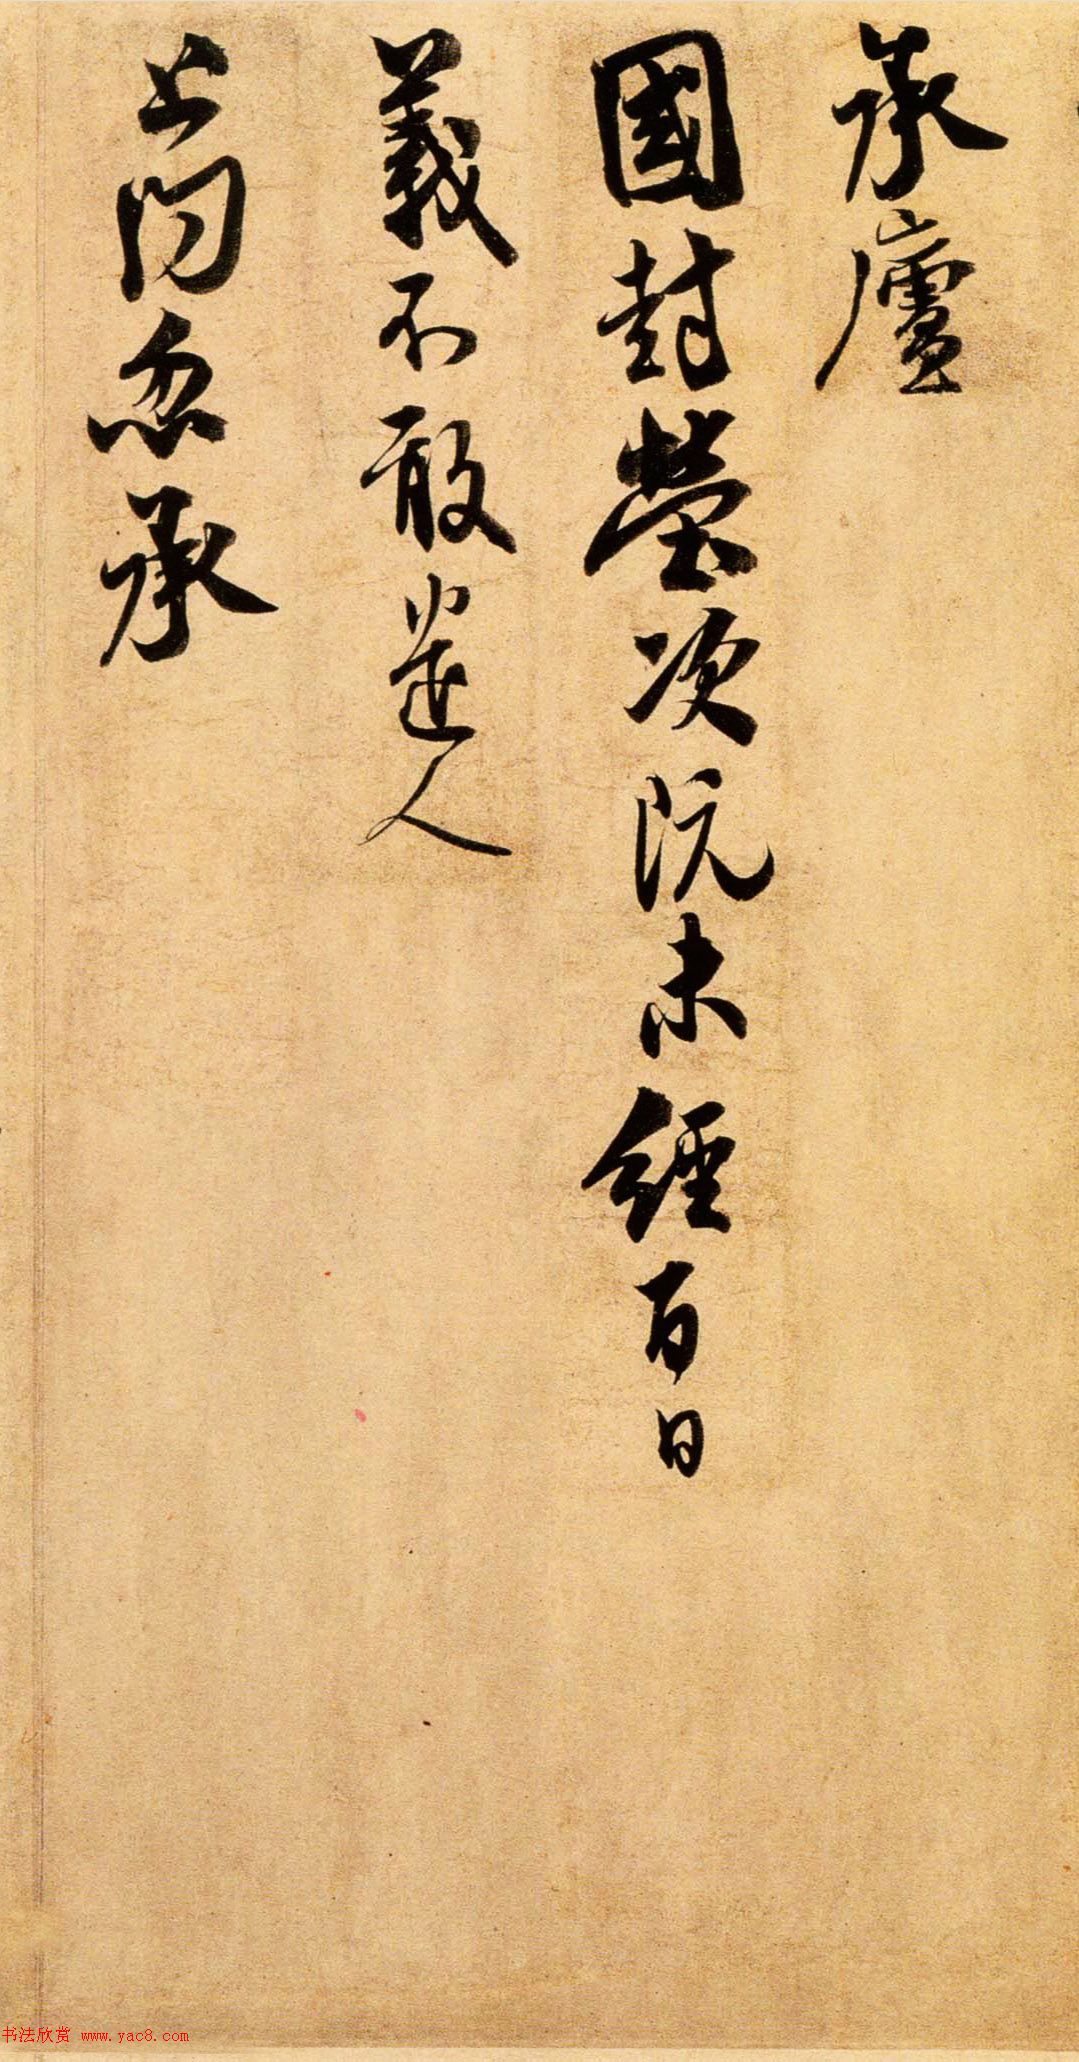 承廬
國封塋次阮未經百日
義不敢遣人
上問忽承
书法欣赏 www.yac8.com